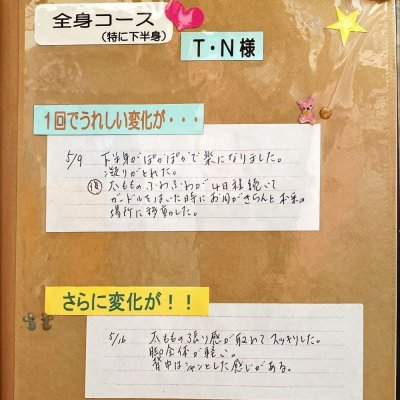 全身コース
(特に下半身)
T・N様
1回でうれしい変化が・・・
5/9 下半身がぽかぽかで楽になりました。
凝りがとれた。
太もものふわふわが4日程続いて
ガードルをはいた時にお肉がきちんと本来の
場所に移動した。
さらに変化が！！
5/16 太ももの張り感が取れてスッキリした。
脚全体が軽い。
背中はシャンとした感じがある。